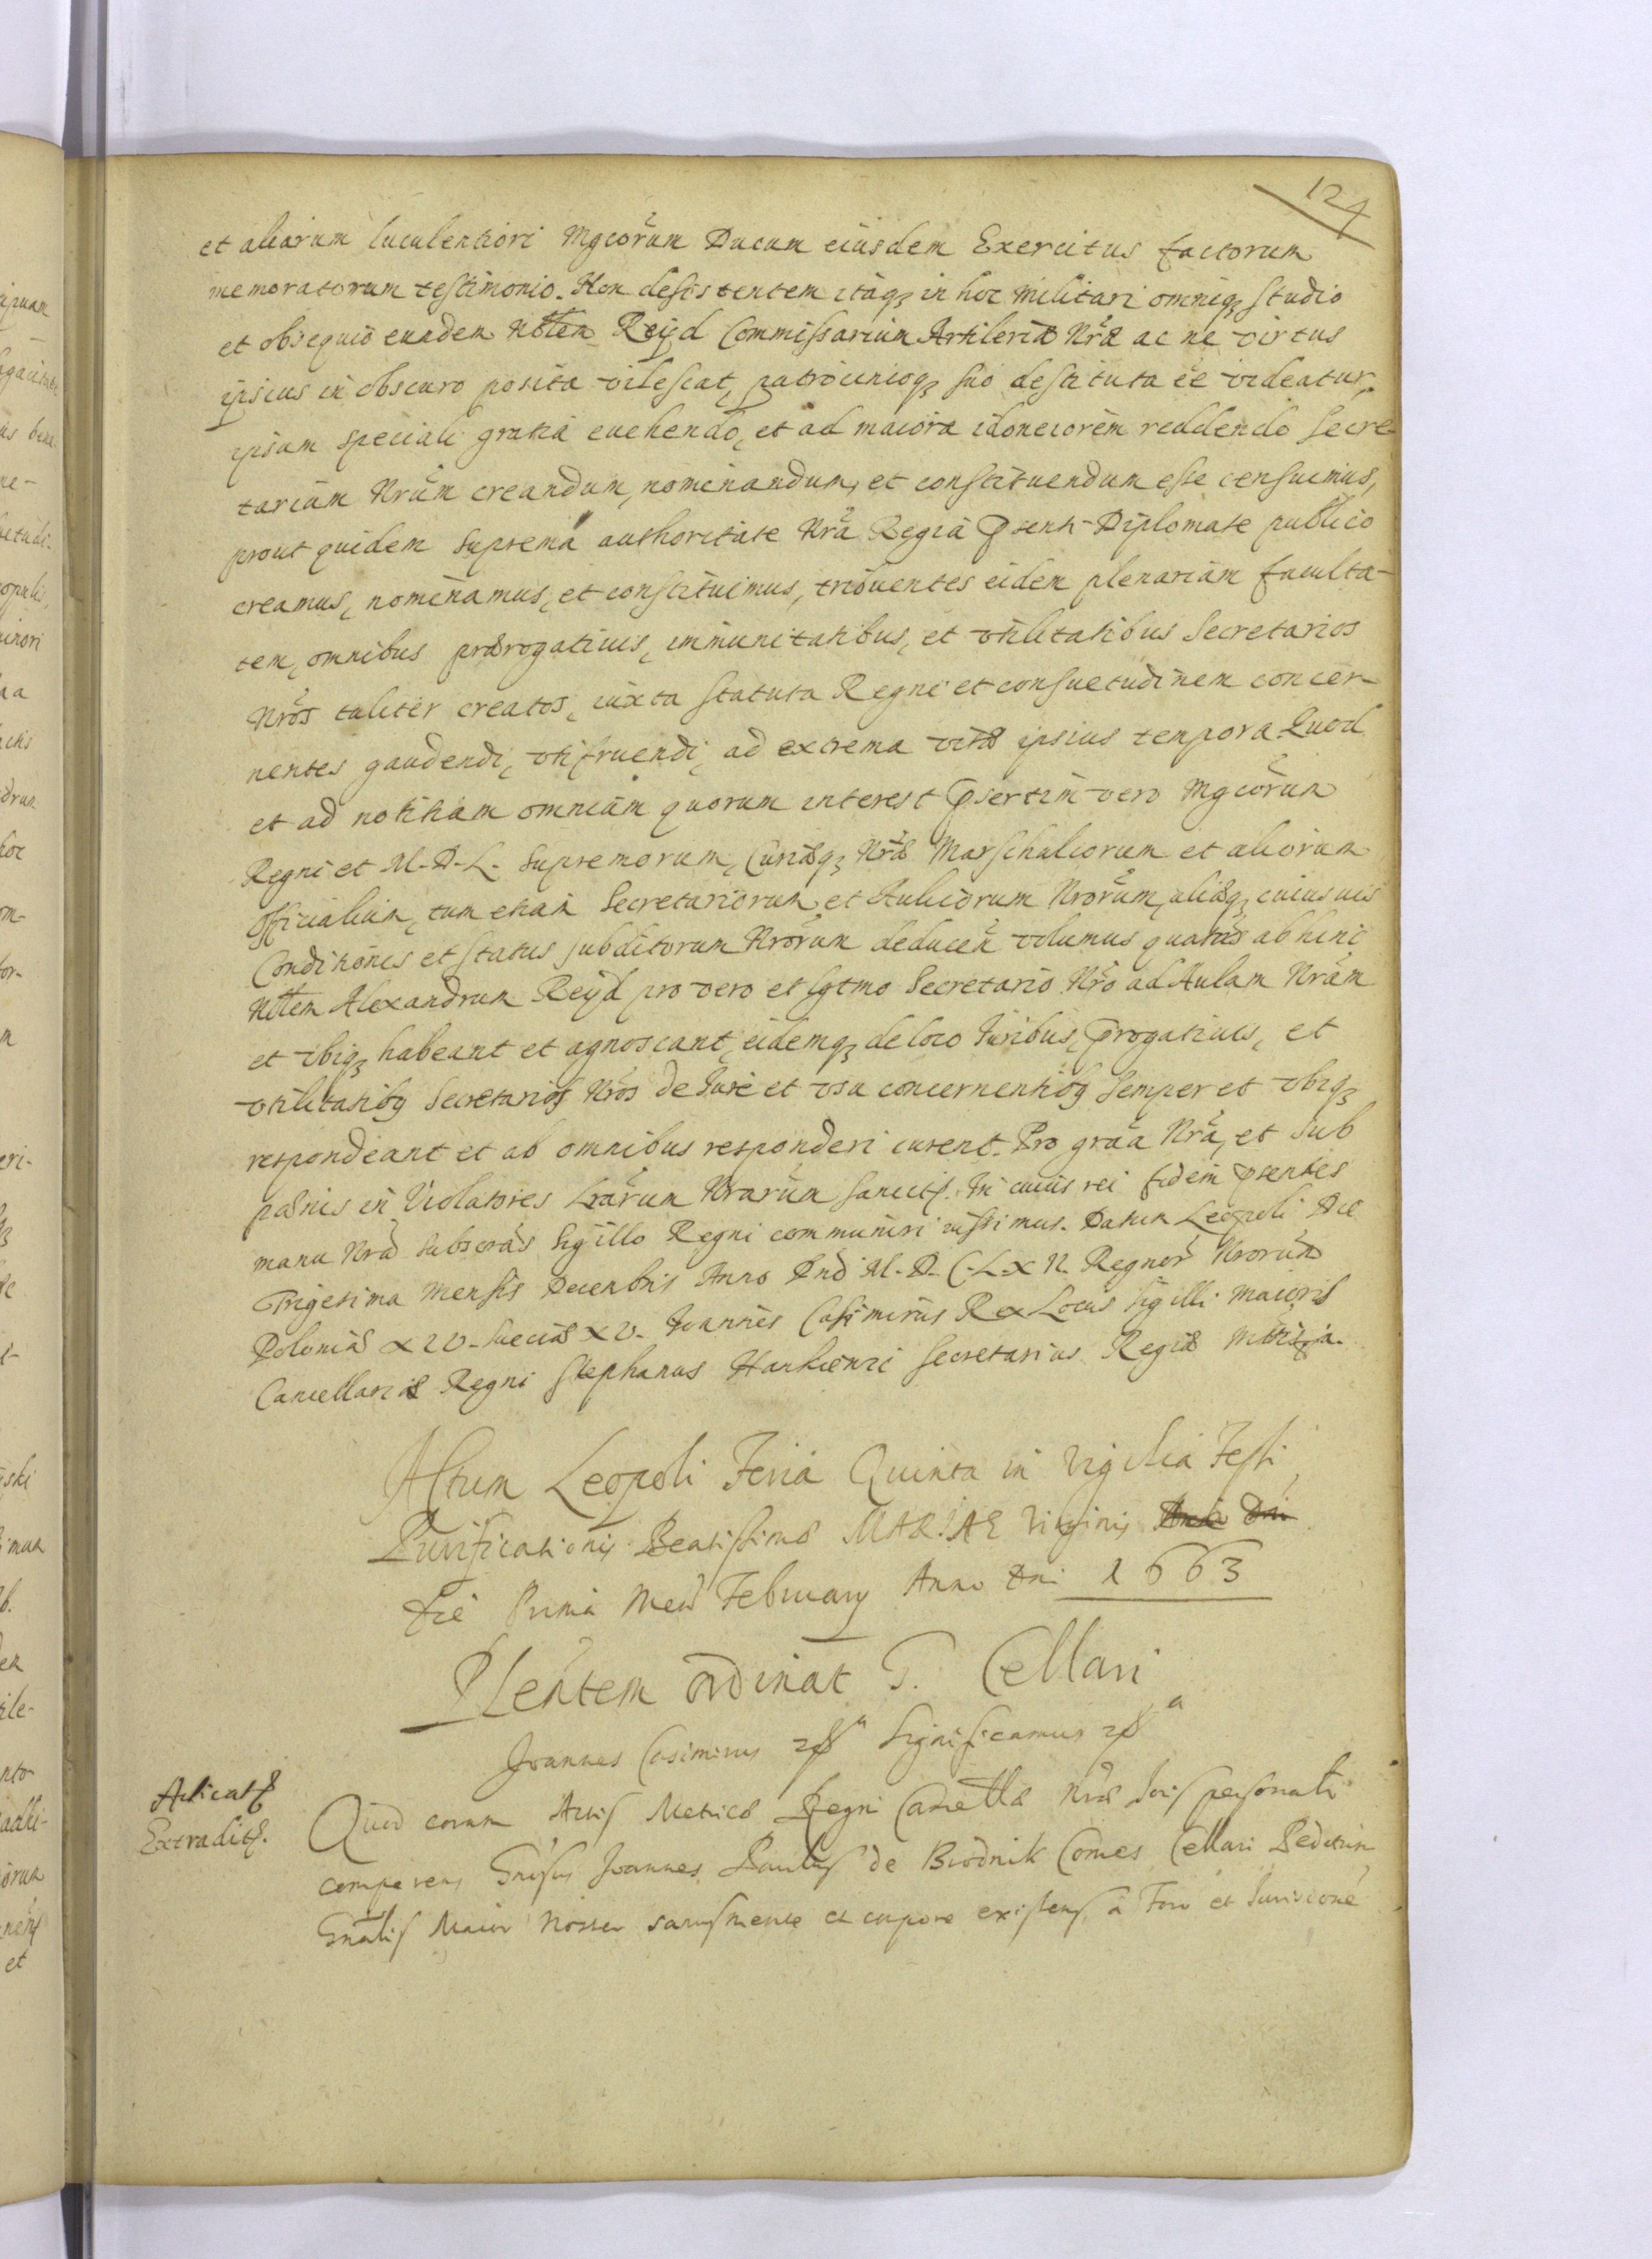 124
et aliorum luculentiori Mgcorum Ducum eiusdem Exercitus factorum
memoratorum testimonio. Non desistentem itaq in hoc Militari omniq studio
et obsequio eundem Nblem Reyd Commissarium Artileriæ Nræ ac ne virtus
ipsius in obscuro posita vilescat, patrocinioq suo destituta ee videatur,
ipsum speciali gratia evehendo, et ad maiora idoneiorem reddendo Secre-
tarium Nrum creandum, nominandum, et constituendum esse censuimus,
prout quidem Suprema authoritate Nra Regia Psenti Diplomate publico
creamus, nominamus, et constituimus, tribuentes eidem plenariam faculta-
tem, omnibus prærogativis, immunitatibus, et vtilitatibus Secretarios
Nros taliter creatos, iuxta statuta Regni et consuetudinem concer-
nentes gaudendi, vtifruendi, ad extrema vitæ ipsius tempora Quod
et ad notitiam omnium quorum interest Psertim vero Mgcorum
Regni et M. D. L. Supremorum, Curiæq Nræ Marschalcorum et aliorum
Officialium, tum etiam Secretariorum et Aulicorum Nrorum, aliæq cuiusuis
Conditionis et status subditorum Nrorum deducen volumus quatus ab hinc
Nblem Alexandrum Reyd pro vero et lgtmo Secretario Nro ad Aulam Nram
et vbiq habeant et agnoscant, eidemq de loco Juribus, Progativis, et
vtilitatibq Secretarios Nros de Jure et vsu concernentibq semper et vbiq
respondeant et ab omnibus responderi curent. Pro graa Nra, et sub
pænis in Violatores Lrarum Nrarum sancitis. In cuius rei fidem Psentes
manu Nra Subscras Sigillo Regni communiri iussimus. Datum Leopoli Die
Trigesima Mensis Decembris Anno Dni M. D. C. L. X II. Regnor Nrorum
Poloniæ X IV. Sueciæ X V. Joannes Casimirus Rex Locus Sigilli Maioris
Cancellariæ Regni Stephanus Hankiewic Secretarius Regiæ Mttis
Actum Leopoli Feria Quinta in Vigilia Festi
Purificationis Beatissimæ MARIAE Virginis Anno Dni
die Prima Mens February Anno Dni 1663
Plentem ordinat G. Cellari
Joannes Casimirus Significamus
Articats
Extradits.
Quod coram Actis Metricæ Regni Nræ personalr
comparens Gnrsus Joannes Paulus de Brodnik Comes Cellari Peditum
Gnalis Maior Noster sanus mente et corpore existens a Foro et Jurisdone